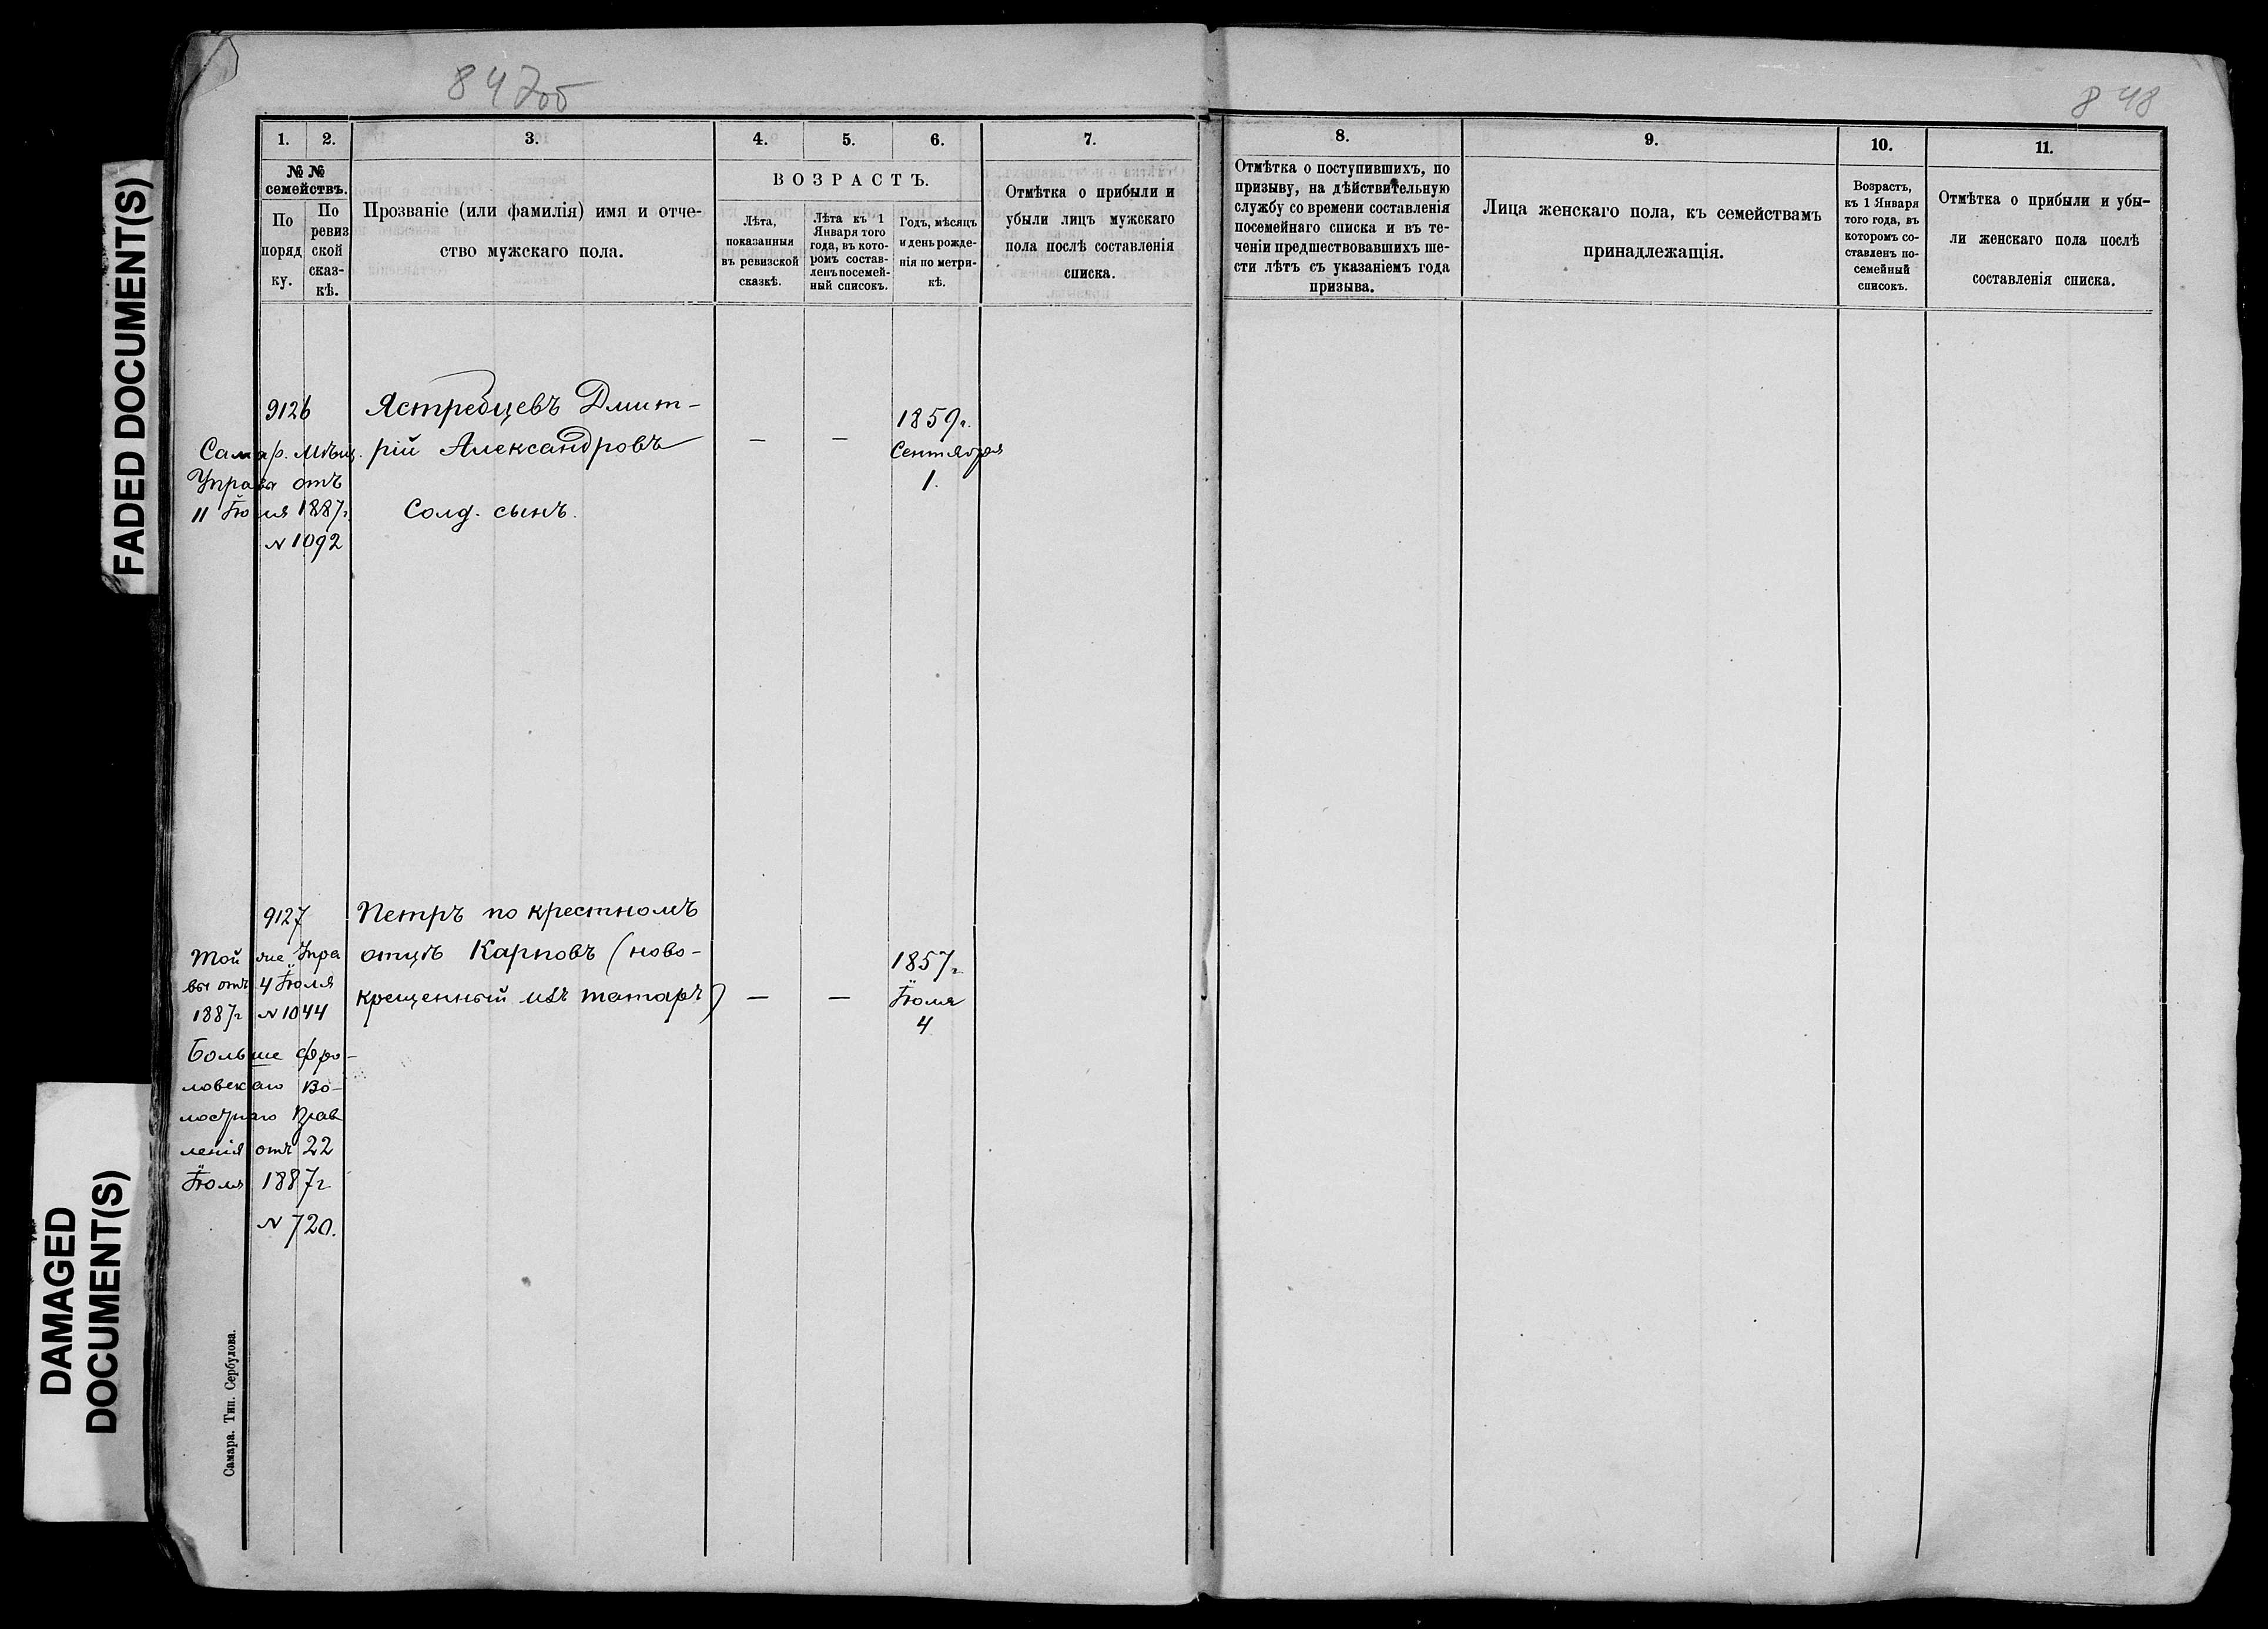 847об
848
FADED DOCUMENT(S)
DAMAGED
DOCUMENT(S)
1.
2.
3.
4.
5.
6.
7.
№ №
семействъ.
По
поряд
ку.
По
ревиз
ской
сказ-
кѣ.
Прозваніе (или фамилія) имя и отче-
ство мужскаго пола.
ВОЗРАСТЪ.
Лѣта,
показанныя
въ ревизской
сказкѣ.
Лѣта къ 1
Января того
года, въ кото-
ромъ состав-
ленъ посемей-
ный списокъ.
Годъ, мѣсяцъ
и день рожде-
нія по метри-
кѣ.
Отмѣтка о прибыли и
убыли лицъ мужскаго
пола послѣ составленія
списка.
8.
9.
10.
11.
Отмѣтка о поступившихъ, по
призыву, на дѣйствительную
службу со времени составленія
посемейнаго списка и въ те-
ченіи предшествовавшихъ ше-
сти лѣтъ съ указаніемъ года
призыва.
Лица женскаго пола, къ семействамъ
принадлежащія.
Возрастъ,
къ 1 Января
того года, въ
которомъ со-
ставленъ по-
семейный
списокъ.
Отмѣтка о прибыли и убы-
ли женскаго пола послѣ
составленія списка.
9126
Самар. Мѣщ.
Управы отъ
11 Іюля 1887г.
N 1092
Ястребцевъ Дмит-
рій Александровъ
Солд. сынъ.
—
—
1859г.
Сентября
1.
9127
Той же Упра
вы отъ 4 Іюля
1887г N 1044
Больше Фро-
ловскаго Во-
лостнаго Прав
ленія отъ 22
Іюля 1887г
N 720.
Петръ по крестномъ
отцѣ Карповъ (ново-
крещенный изъ татаръ)
—
—
1857г.
Іюля
4
Самара. Тип. Сербулова.